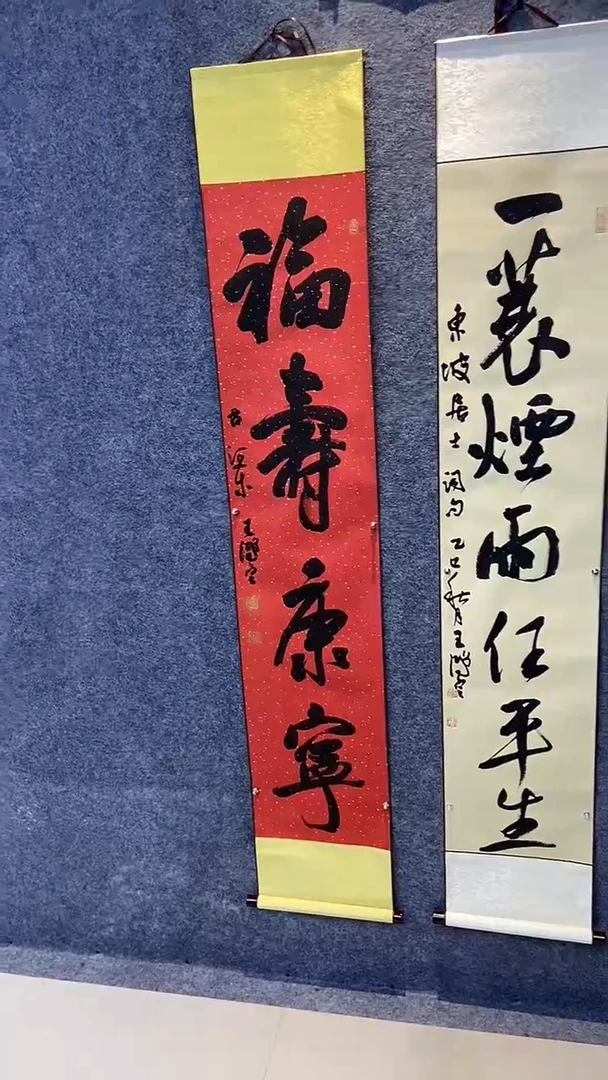 一蓑煙雨任平生
東坡居士詞句乙巳年秋月王
福壽康寧
古河東王